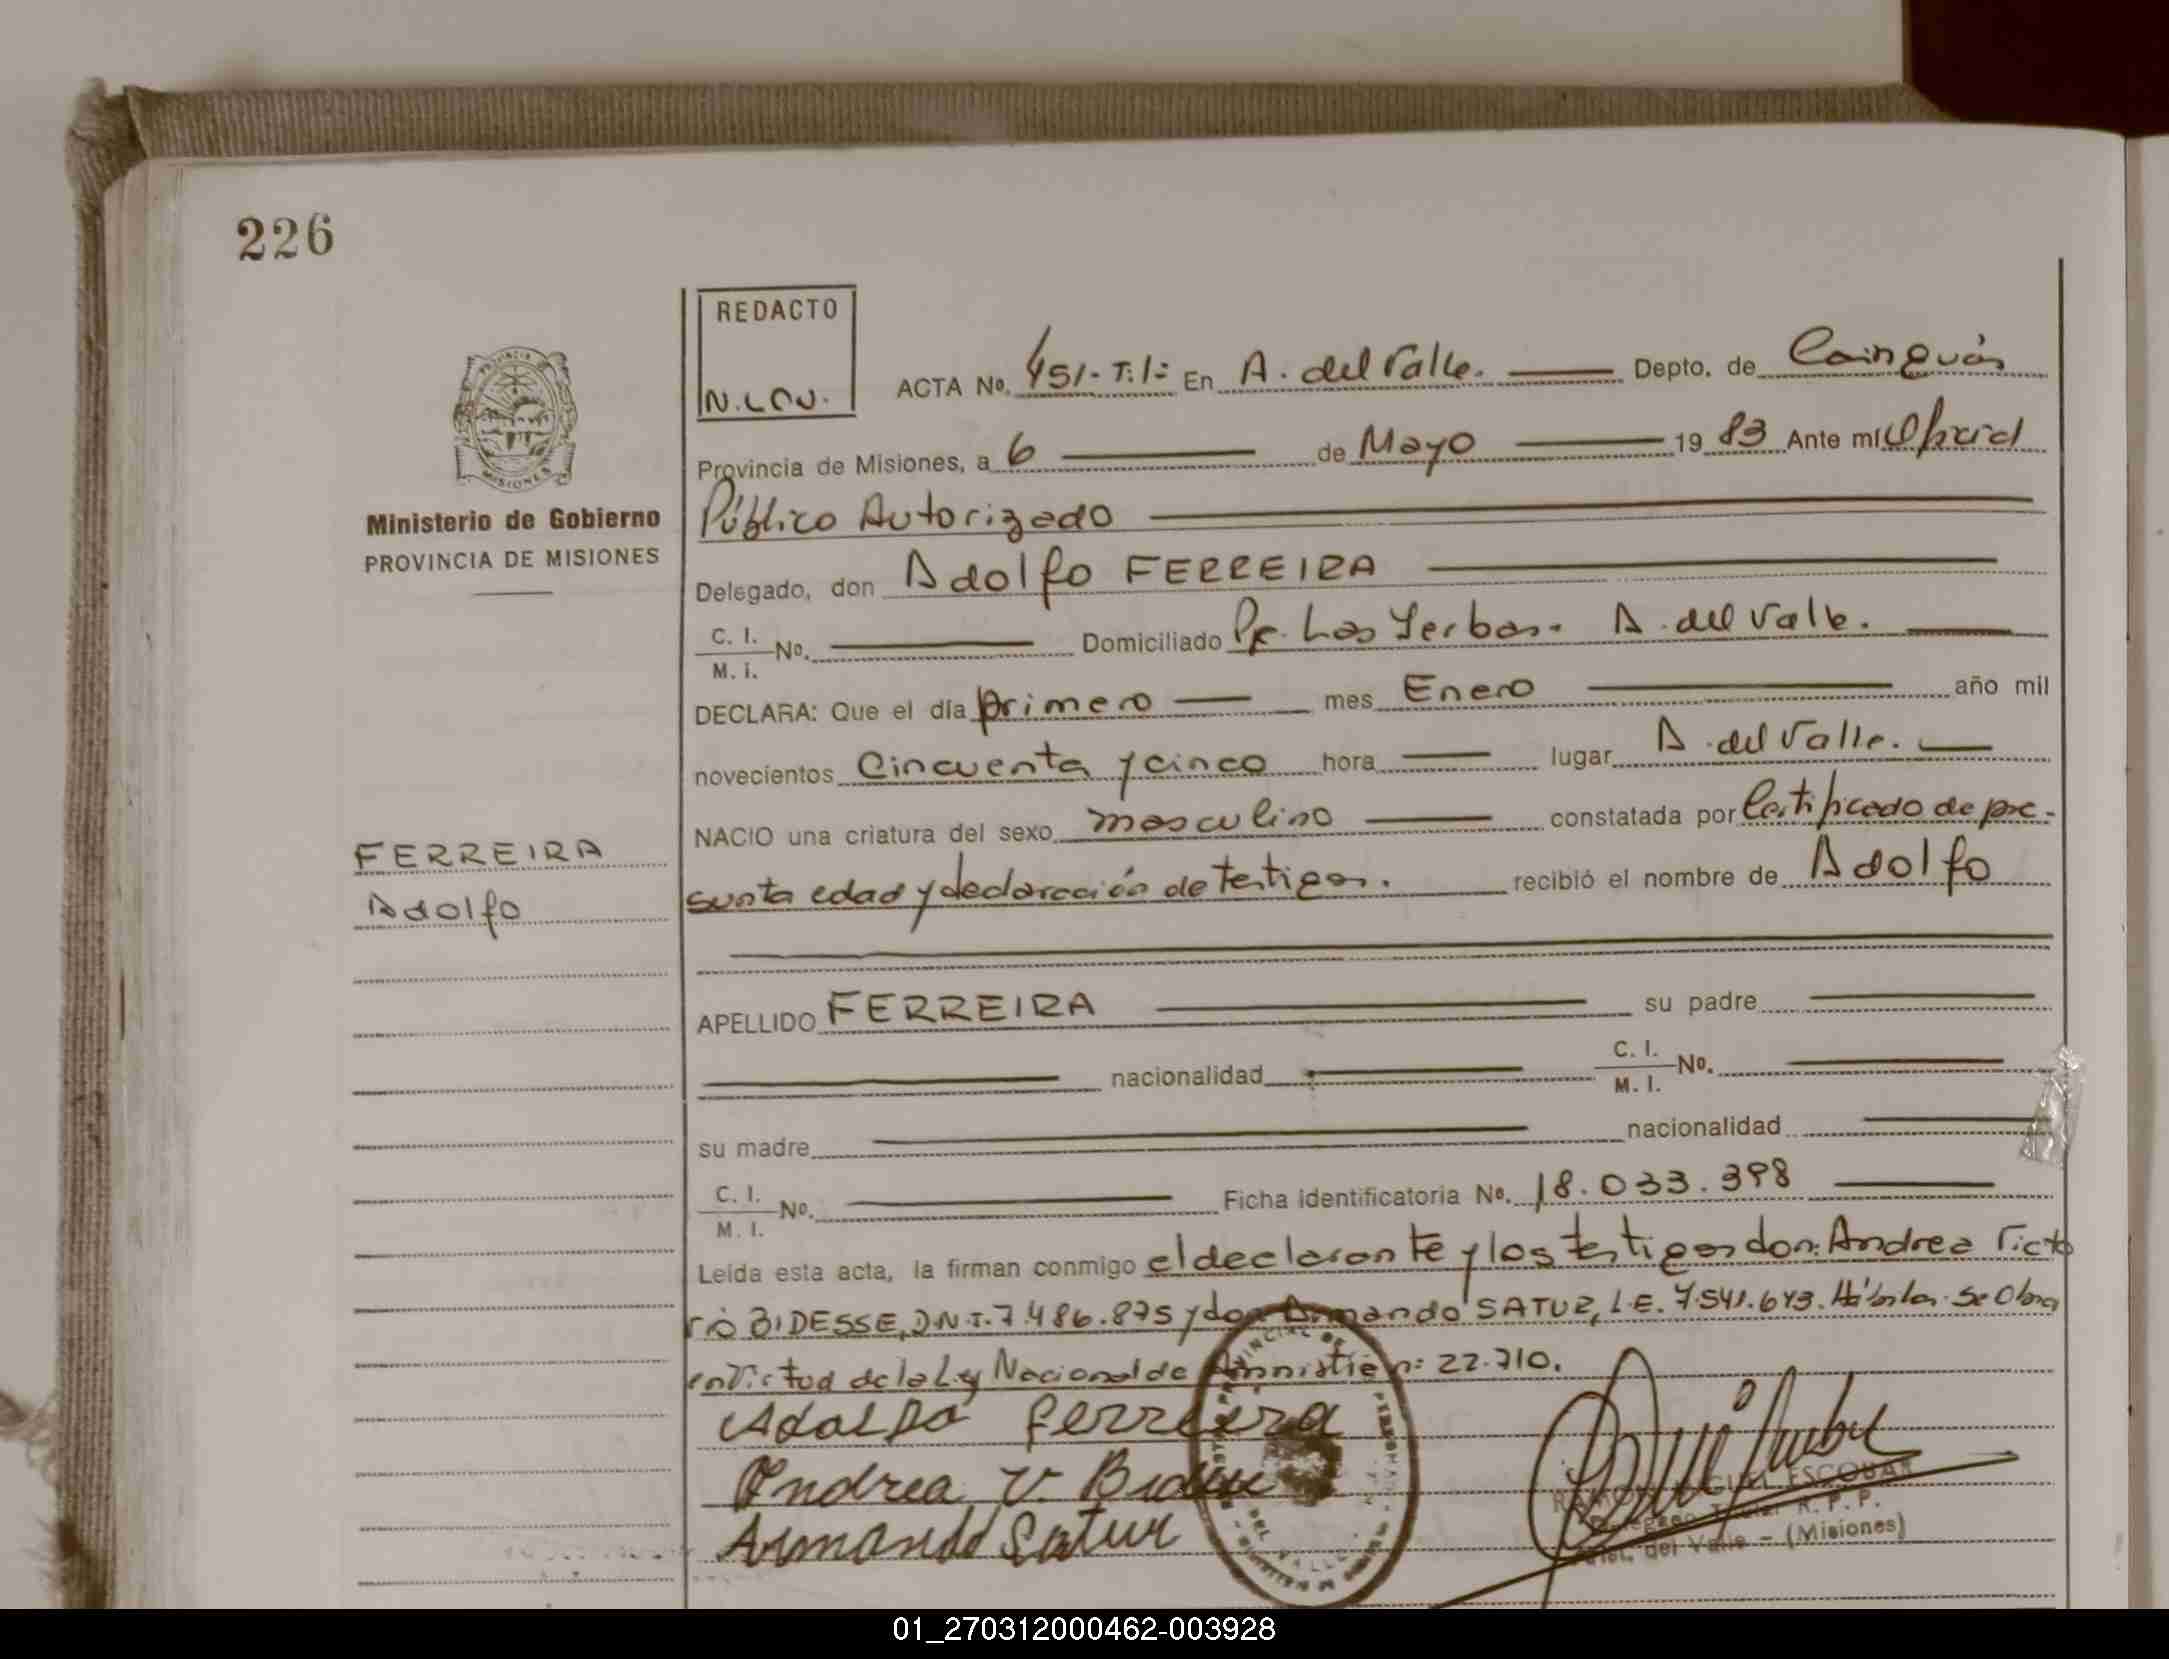 226
REDACTO
N. LOV.
PROVINCIA DE
MISIONES
Ministerio de Gobierno
PROVINCIA DE MISIONES
ACTA No. 451-T:1:= En A. del Valle. Depto. de Cainguás
Provincia de Misiones, a 6 de Mayo 1983 Ante mí Oficial
Público Autorizado
Delegado, don Adolfo FERREIRA
C. I. / M. I. No. Domiciliado Pc. Las Yerbas. A. del Valle.
DECLARA: Que el día primero mes Enero año mil
novecientos Cincuenta y cinco hora lugar A. del Valle.
NACIO una criatura del sexo masculino constatada por Certificado de pre-
sunta edad y declaración de testigos. recibió el nombre de Adolfo
FERREIRA
Adolfo
APELLIDO FERREIRA su padre
nacionalidad C. I. / M. I. No.
su madre nacionalidad
C. I. / M. I. No. Ficha identificatoria No. 18.033.398
Leída esta acta, la firman conmigo el declarante y los testigos don: Andrea Victo
rio BIDESSE, D.N.I. 7.486.875 y don Armando SATUR, L.E. 7.541.643. Hábiles. Se Obra
en Virtud de la Ley Nacional de Amnistía n: 22.710.
Adolfo Ferreira
Andrea V.
Armando Satur
ESCOBAR
R. P. P.
del Valle - (Misiones)
01_270312000462-003928